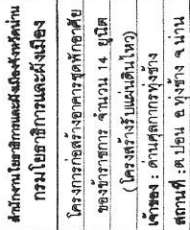 สำนักงานโยธาธิการและผังเมืองจังหวัดน่าน
กรมโยธาธิการและผังเมือง
โครงการก่อสร้างอาคารชุดพักอาศัย
ของข้าราชการ จำนวน 14 ยูนิต
(โครงสร้างรับแผ่นดินไหว)
เจ้าของ : ด่านศุลกากรทุ่งช้าง
สถานที่ : ต.ปอน อ.ทุ่งช้าง จ.น่าน